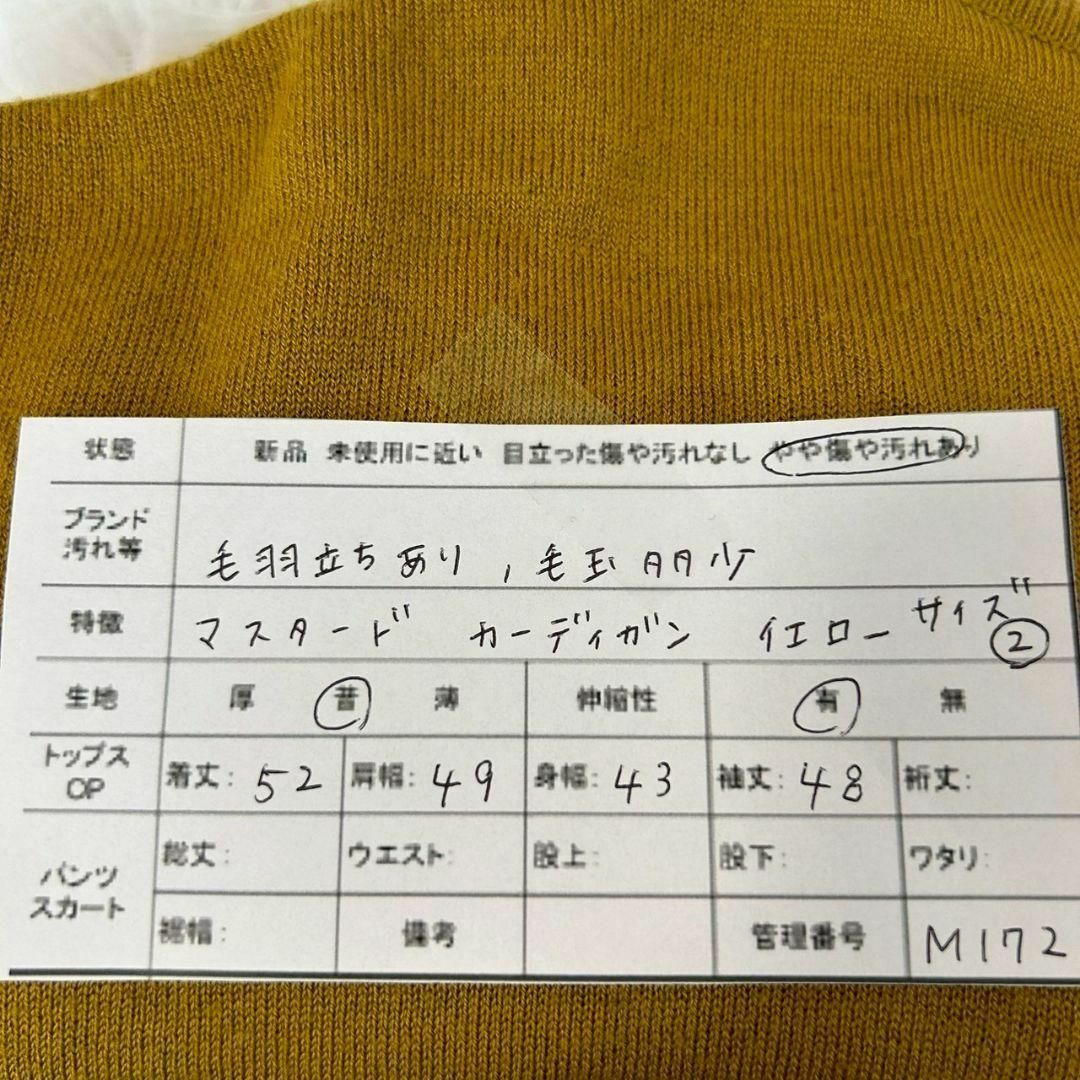 状態 新品 未使用に近い 目立った傷や汚れなし やや傷や汚れあり
ブランド
汚れ等 毛羽立ちあり, 毛玉
特徴 マスタード カーディガン イエロー サイズ②
生地 厚 普 薄 伸縮性 有 無
トップス
OP 着丈: 52 肩幅: 49 身幅: 43 袖丈: 48 裄丈:
パンツ
スカート 総丈: ウエスト: 股上: 股下: ワタリ:
裾幅: 備考 管理番号 M172